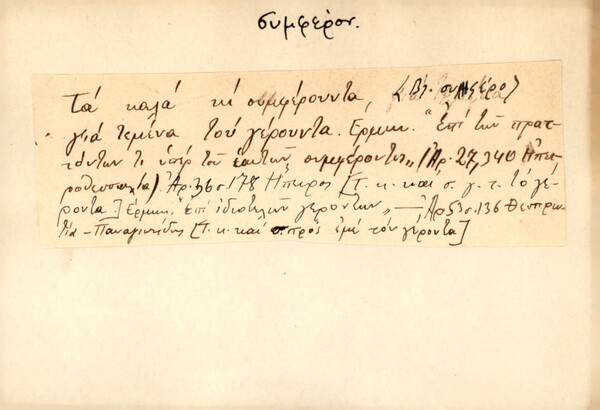 συμφέρον.
Τά καλά κή συμφέρουντα, (Βλ. συμφέρο)
γιά τεμένα τού γέρουντα. Ερμην. "ἐπί τῶν πρατ-
τόντων τι ὑπέρ τοῦ ἑαυτῶν συμφέροντος„ (Ἀρ. 27,340 Ἠπει-
ροθεσσαλία). Ἀρ. 36 σ. 178 Ἤπειρος [Τ. κ. καί σ. γ. τ. τό γέ-
ροντα.] Ἑρμην. "ἐπί ἰδιοτελῶν γερόντων„ — Ἀρ 53 σ. 136 Θεσπρω-
τία - Παναγιωτίδης [Τ. κ. καί σ. πρός ἐμέ τόν γέροντα]